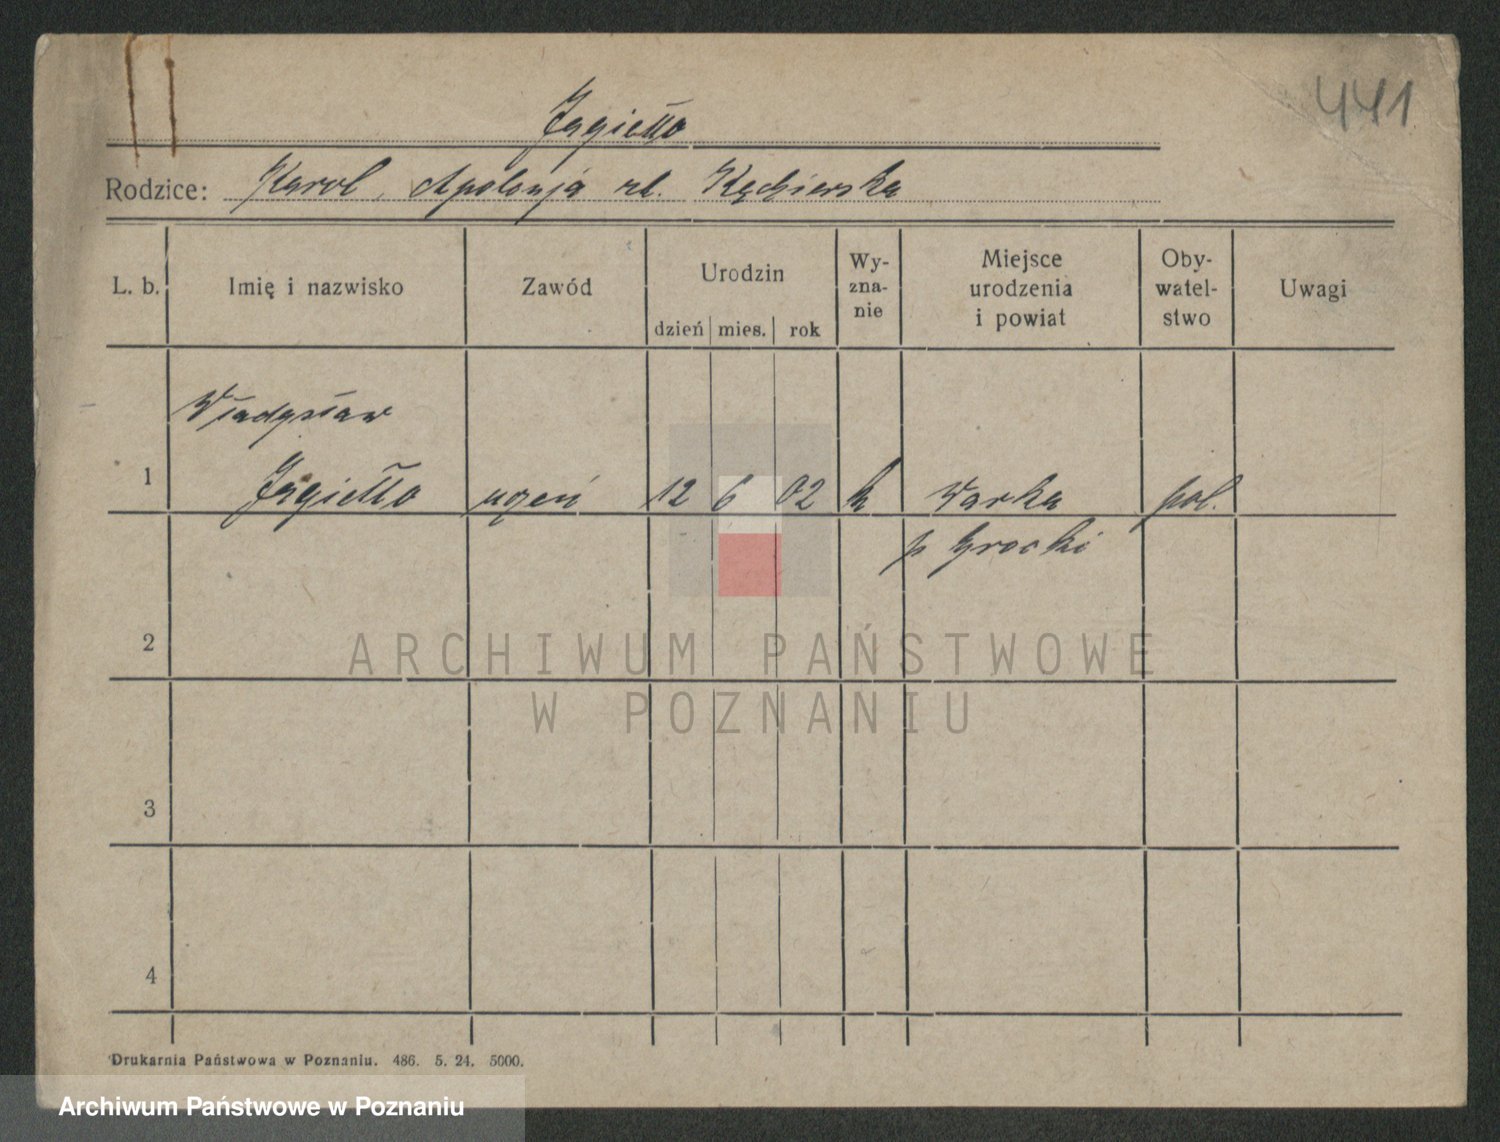 441
Jagiełło
Rodzice: Karol, Apolonja
L. b. Imię i nazwisko Zawód Urodzin Wy-zna-nie Miejsce urodzenia i powiat Oby-watel-stwo Uwagi
dzień mies. rok
Władysław
1 Jagiełło uczeń 12 6 02 k Warka pol.
p Grocki
2
ARCHIWUM PAŃSTWOWE
W POZNANIU
3
4
Drukarnia Państwowa w Poznaniu. 486. 5. 24. 5000.
Archiwum Państwowe w Poznaniu